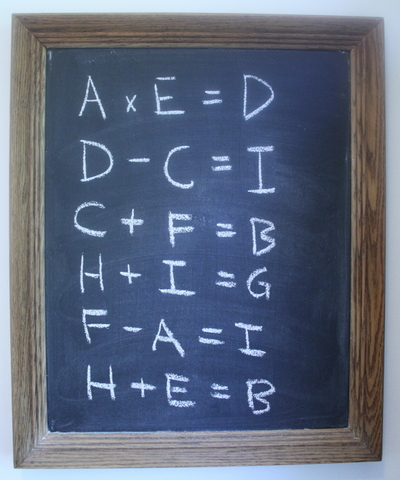 A x E = D
D - C = I
C + F = B
H + I = G
F - A = I
H + E = B